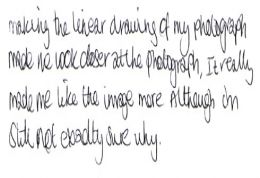 making the linear drawing of my photograph
made me look closer at the photograph, It really
made me like the image more Although im
Still not exactly sure why.